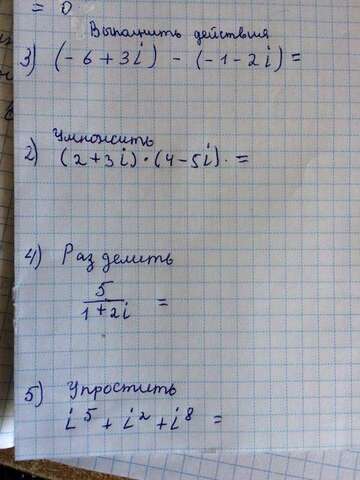 = 0
Выполнить действия
3) (-6+3i) - (-1-2i) =
Умножить
2) (2+3i)·(4-5i). =
4) Разделить
5/1+2i =
5) Упростить
i⁵ + i² + i⁸ =